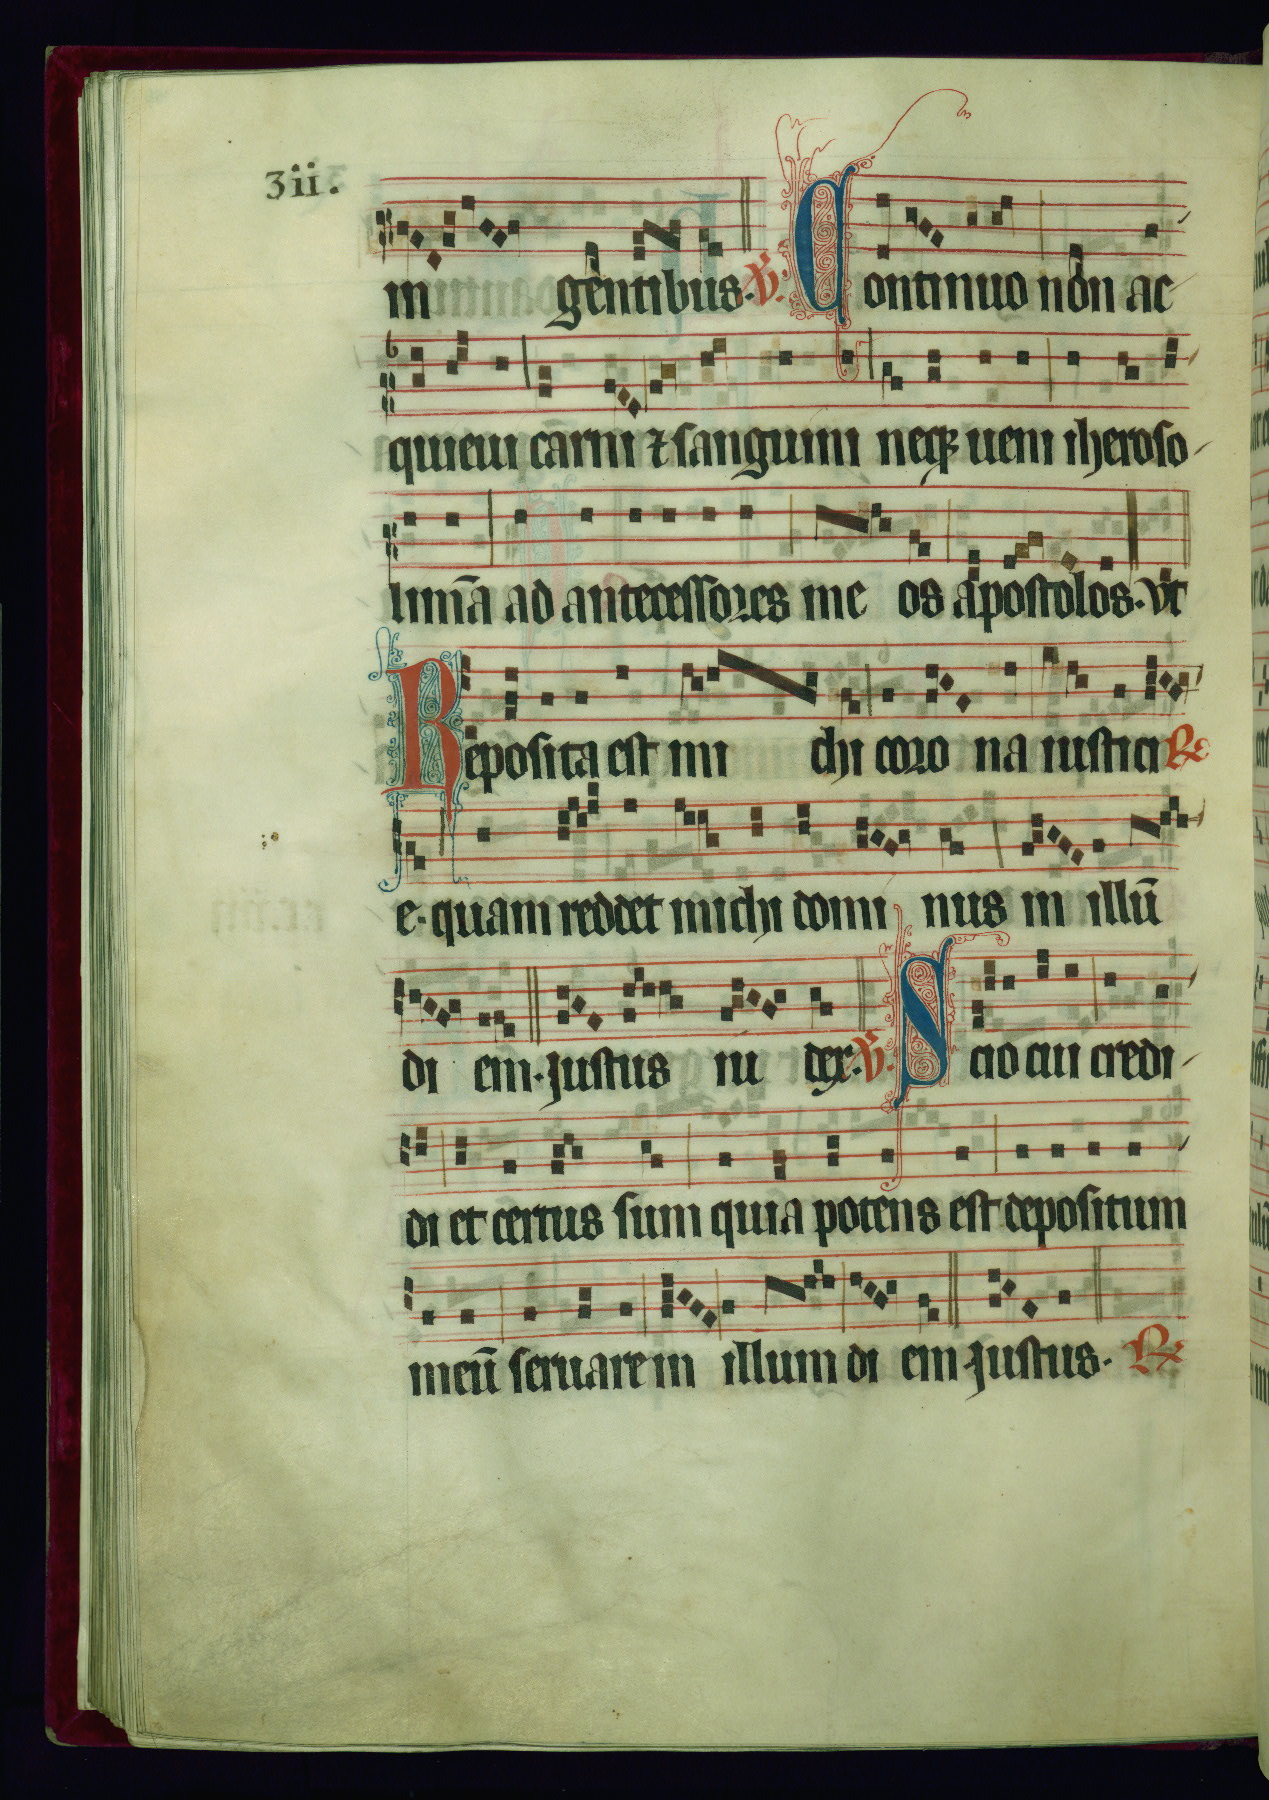 3ii.
in gentibus. V. Continuo non ac
quieui carni ⁊ sanguini neqꝫ ueni iheroso
limā ad antecessores me os apostolos. vt
Reposita est mi chi coro na iustici R
e. quam reddet michi domi nus in illū
di em. justus iu dex. V. Scio cui credi
di et certus sum quia potens est depositum
meū seruare in illum di em. justus. R